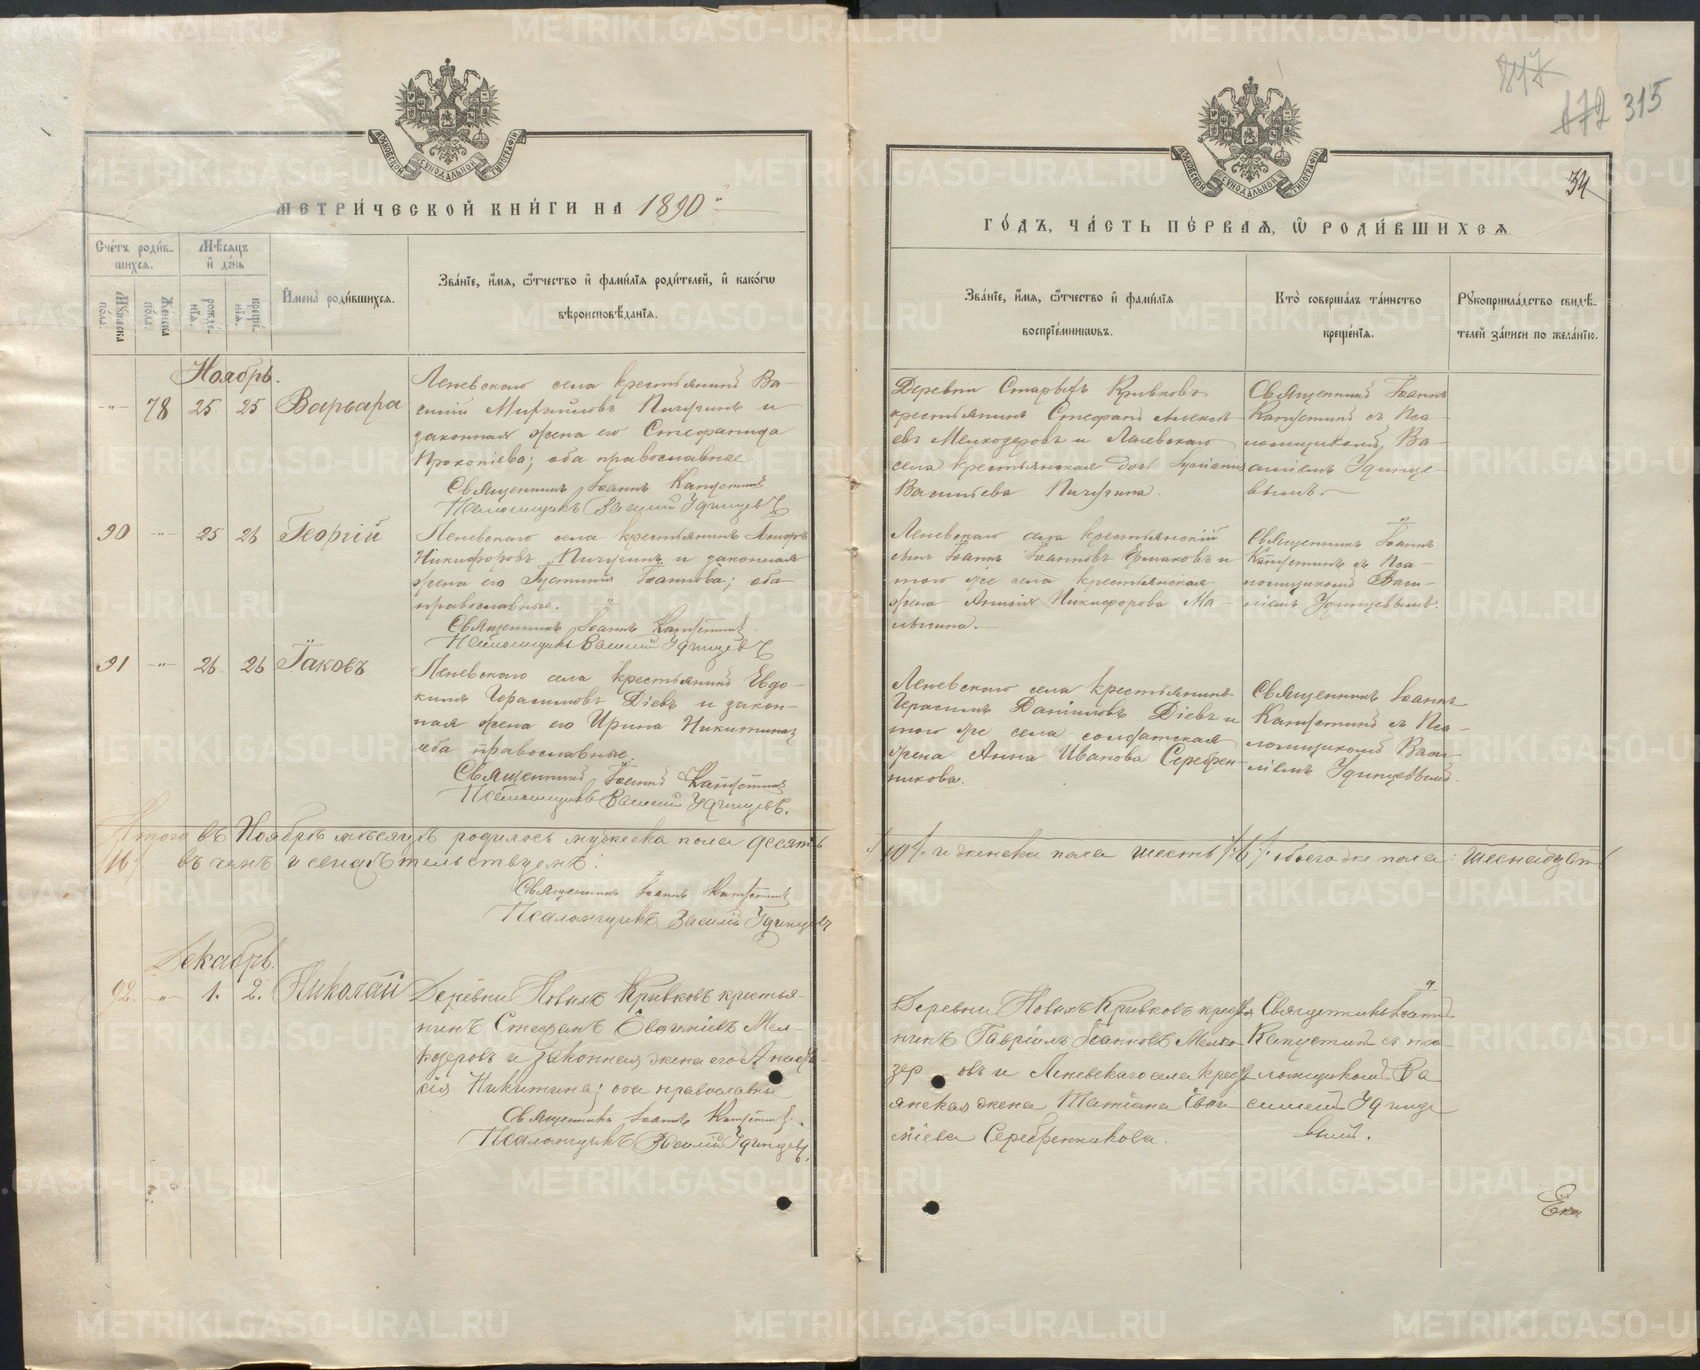 МЕТРИ́ЧЕСКОЙ КНИ́ГИ НА 1890
Сче́тъ роди́вшихся.
Мужеска пола.
Женска пола.
Мѣсяцъ и день
рожденія.
крещенія.
Имена̀ роди́вшихся.
Зва́нїе, и́мя, ѻ҆́тчество и҆ фами́лїя роди́телей, и҆ како́гѡ
вѣроисповѣ́данїѧ.
Ноябрь.
78 25 25 Варвара
Леневскаго села крестьянинъ Ва-
силій Михайловъ Пичугинъ и
законная жена его Стефанида
Прокопіева; оба православные.
Священникъ Іоаннъ Капустинъ
Псаломщикъ Василій Удинцевъ
90 25 26 Георгій
Леневскаго села крестьянинъ
Никифоровъ Пичугинъ и законная
жена его Іустинія Іоаннова; оба
православные.
Священникъ Іоаннъ Капустинъ
Псаломщикъ Василій Удинцевъ
91 26 26 Іаковъ
Леневскаго села крестьянинъ Евдо-
кимъ Герасимовъ Діевъ и закон-
ная жена его Ирина Никитина;
оба православные.
Священникъ Іоаннъ Капустинъ
Псаломщикъ Василій Удинцевъ.
Итого въ Ноябрѣ мѣсяцѣ родилось мужеска пола десять
/16/ въ чемъ и свидѣтельствуемъ:
Священникъ Іоаннъ Капустинъ
Псаломщикъ Василій Удинцевъ
Декабрь.
92. 1. 2. Николай
Деревни Новыхъ Кривковъ крестья-
нинъ Стефанъ Мел-
козеровъ и законная жена его
Никитина; оба православные
Священникъ Іоаннъ Капустинъ.
Псаломщикъ Василій Удинцевъ.
847
172 315
34
ГО́ДЪ, ЧА́СТЬ ПЕ́РВАЯ, Ѡ҆ РОДИ́ВШИХСЯ
Зва́нїе, и́мя, ѻ҆́тчество и҆ фами́лїя
воспрїе́мникѡвъ.
Кто̀ соверша́лъ та́инство
креще́нїѧ.
Рꙋкоприкла́дство свидѣ́-
телей за́писи по жела́нїю.
Деревни Старыхъ Кривковъ
крестьянинъ Стефанъ Алексѣ-
евъ Мелкозеровъ и Леневскаго
села крестьянская дочь
Васильева Пичугина.
Священникъ Іоаннъ
Капустинъ съ Пса-
ломщикомъ Ва-
силіемъ Удинце-
вымъ.
Леневскаго села крестьянскій
сынъ Іоаннъ Іоанновъ Ермаковъ и
того же села крестьянская
жена Никифорова Ма-
льгина.
Священникъ Іоаннъ
Капустинъ съ Пса-
ломщикомъ Васи-
ліемъ Удинцевымъ.
Леневскаго села крестьянинъ
Герасимъ Даніиловъ Діевъ и
того же села солдатская
жена Анна Иванова Серебрен-
никова.
Священникъ Іоаннъ
Капустинъ съ Пса-
ломщикомъ Васи-
ліемъ Удинцевымъ.
/10/. и женска пола шесть /6/. обоего же пола: шеснадцать
Деревни Новыхъ Кривковъ кресть
нинъ Гавріилъ Іоанновъ Мелко
зеровъ и Леневскаго села кресть
янская жена Татіана
Серебренникова.
Священникъ Іоаннъ
Капустинъ съ пса-
ломщикомъ Ва
силіемъ Удинце
вымъ.
METRIKI.GASO-URAL.RU